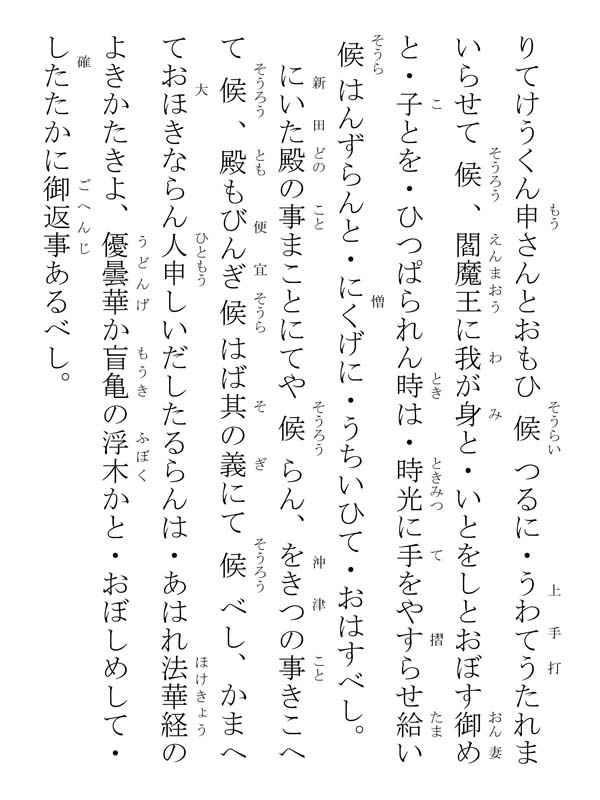 りてけうくん申さんとおもひ候つるに・うわてうたれま
いらせて候、閻魔王に我が身と・いとをしとおぼす御め
と・子とを・ひつぱられん時は・時光に手をやすらせ給い
候はんずらんと・にくげに・うちいひて・おはすべし。
にいた殿の事まことにてや候らん、をきつの事きこへ
て候、殿もびんぎ候はば其の義にて候べし、かまへ
ておほきならん人申しいだしたるらんは・あはれ法華経の
よきかたきよ、優曇華か盲亀の浮木かと・おぼしめして・
したたかに御返事あるべし。